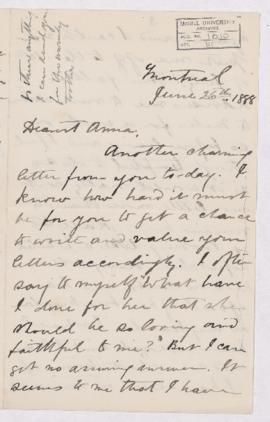 McGILL UNIVERSITY
ARCHIVES
ACC. NO. 1010
REF.
Is there anything
I can do
for
Montreal
June 26th 1888
Dearest Anna,
Another charming
letter from you to-day. I
know how hard it must
be for you to get a chance
to write and value your
letters accordingly. I often
say to myself "What have
I done for her that she
should be so loving and
faithful to me?" But I can
get no answer. It
seems to me that I have